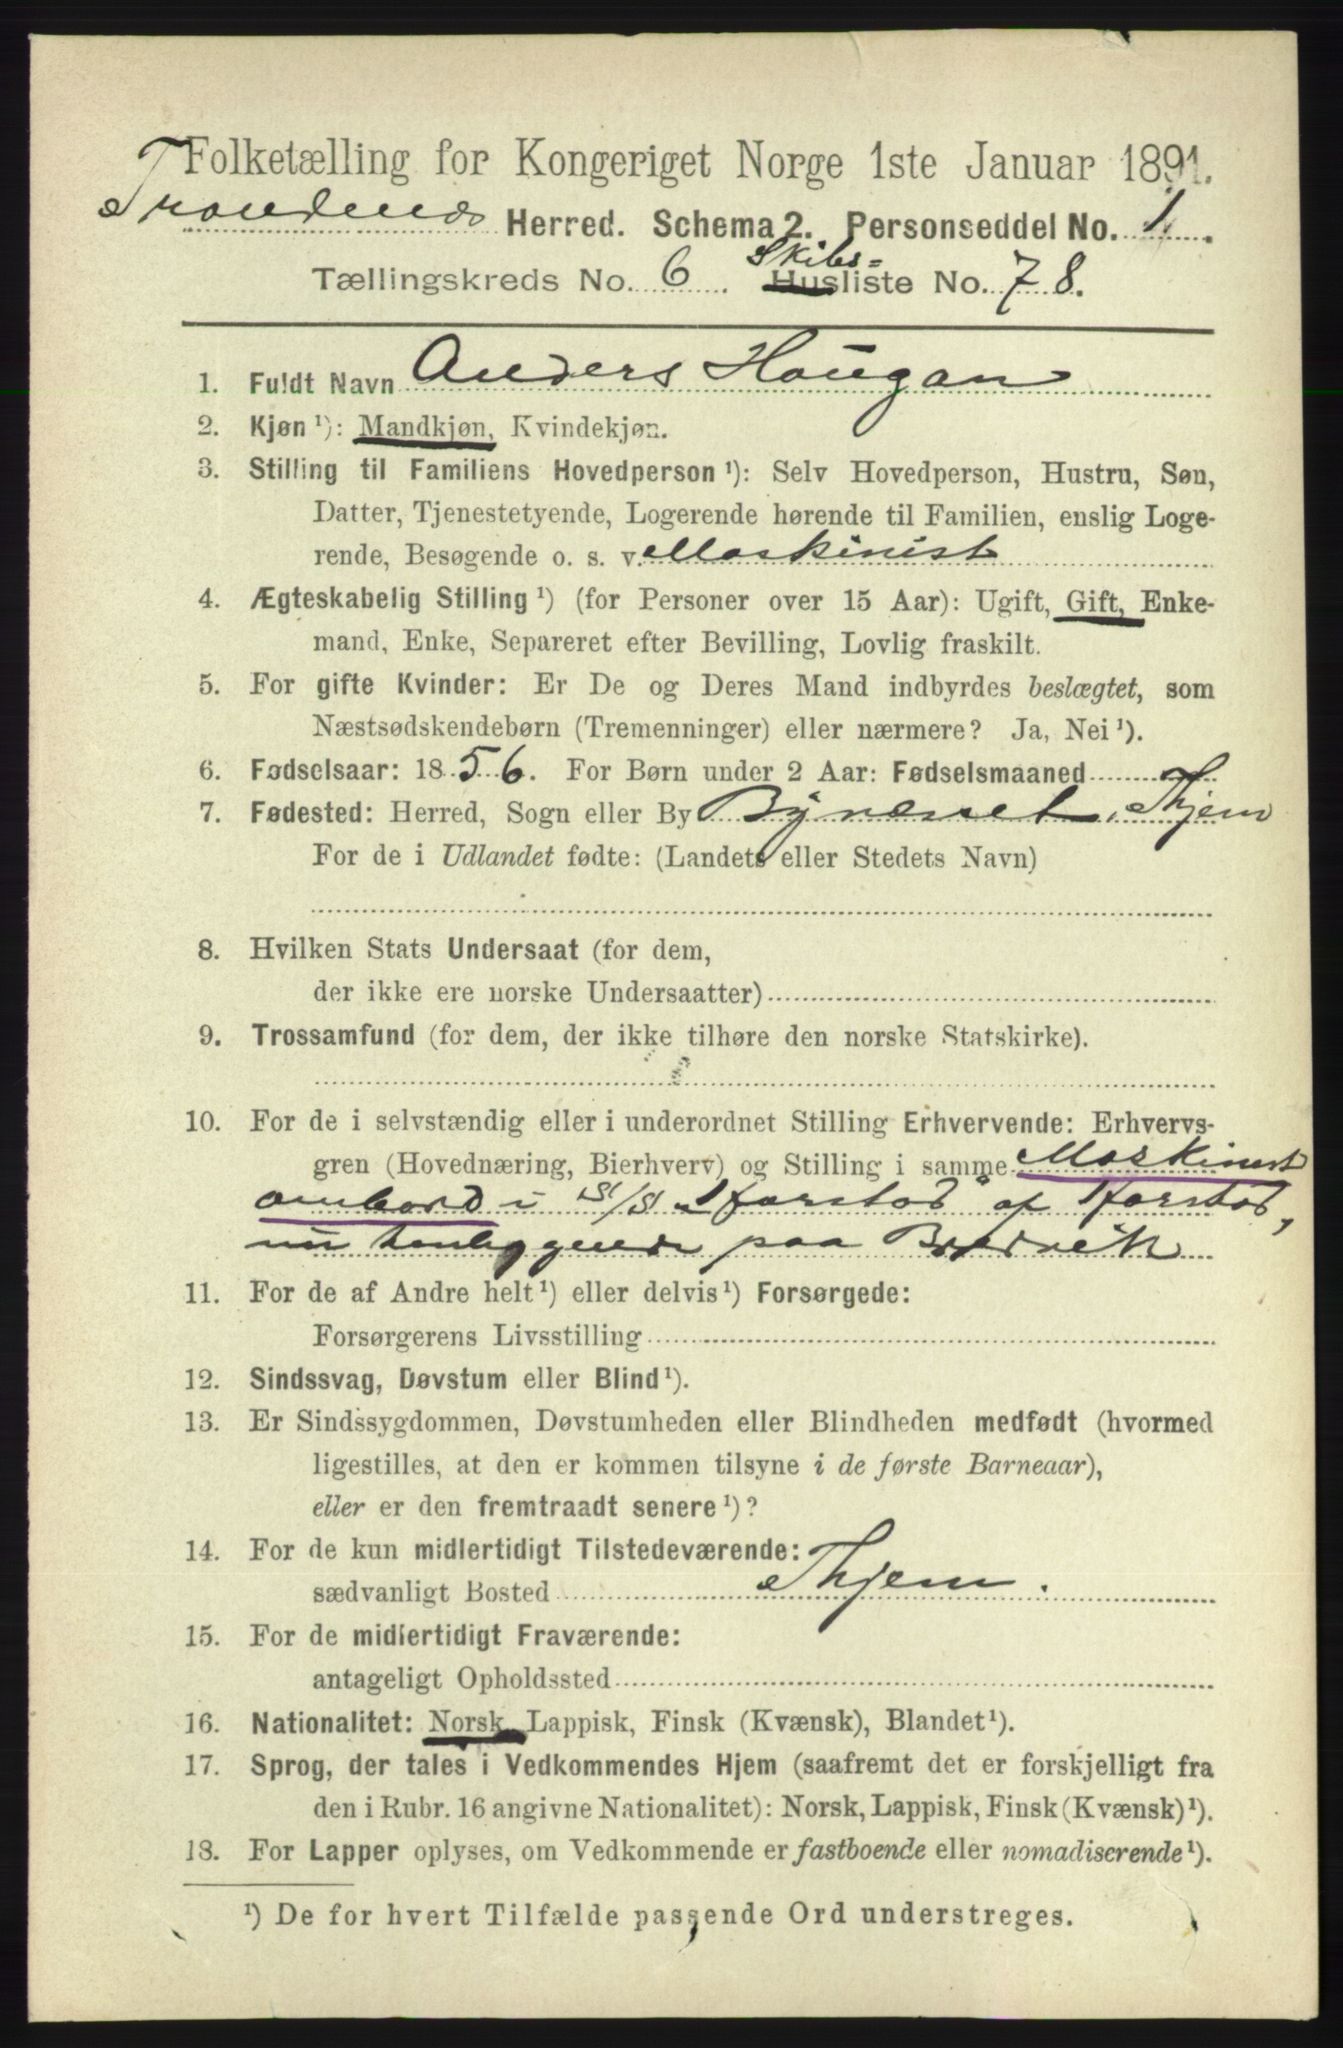 Folketælling for Kongeriget Norge 1ste Januar 1891.
Trondenes Herred. Schema 2. Personseddel No. 1.
Skibs=
Tællingskreds No. 6. Husliste No. 78.
1. Fuldt Navn Anders Haugan
2. Kjøn ¹): Mandkjøn, Kvindekjøn.
3. Stilling til Familiens Hovedperson ¹): Selv Hovedperson, Hustru, Søn,
Datter, Tjenestetyende, Logerende hørende til Familien, enslig Loge-
rende, Besøgende o. s. v. Maskinist
4. Ægteskabelig Stilling ¹) (for Personer over 15 Aar): Ugift, Gift, Enke-
mand, Enke, Separeret efter Bevilling, Lovlig fraskilt.
5. For gifte Kvinder: Er De og Deres Mand indbyrdes beslægtet, som
Næstsødskendebørn (Tremenninger) eller nærmere? Ja, Nei ¹).
6. Fødselsaar: 1856. For Børn under 2 Aar: Fødselsmaaned
7. Fødested: Herred, Sogn eller By Bynesset, Thjem
For de i Udlandet fødte: (Landets eller Stedets Navn)
8. Hvilken Stats Undersaat (for dem,
der ikke ere norske Undersaatter)
9. Trossamfund (for dem, der ikke tilhøre den norske Statskirke).
10. For de i selvstændig eller i underordnet Stilling Erhvervende: Erhvervs-
gren (Hovednæring, Bierhverv) og Stilling i samme Maskinist
ombord i S/S "Harstad" af Harstad,
nu henliggende paa Bredvik
11. For de af Andre helt ¹) eller delvis ¹) Forsørgede:
Forsørgerens Livsstilling
12. Sindssvag, Døvstum eller Blind ¹).
13. Er Sindssygdommen, Døvstumheden eller Blindheden medfødt (hvormed
ligestilles, at den er kommen tilsyne i de første Barneaar),
eller er den fremtraadt senere ¹)?
14. For de kun midlertidigt Tilstedeværende:
sædvanligt Bosted Thjem.
15. For de midlertidigt Fraværende:
antageligt Opholdssted
16. Nationalitet: Norsk, Lappisk, Finsk (Kvænsk), Blandet ¹).
17. Sprog, der tales i Vedkommendes Hjem (saafremt det er forskjelligt fra
den i Rubr. 16 angivne Nationalitet): Norsk, Lappisk, Finsk (Kvænsk) ¹).
18. For Lapper oplyses, om Vedkommende er fastboende eller nomadiserende ¹).
¹) De for hvert Tilfælde passende Ord understreges.